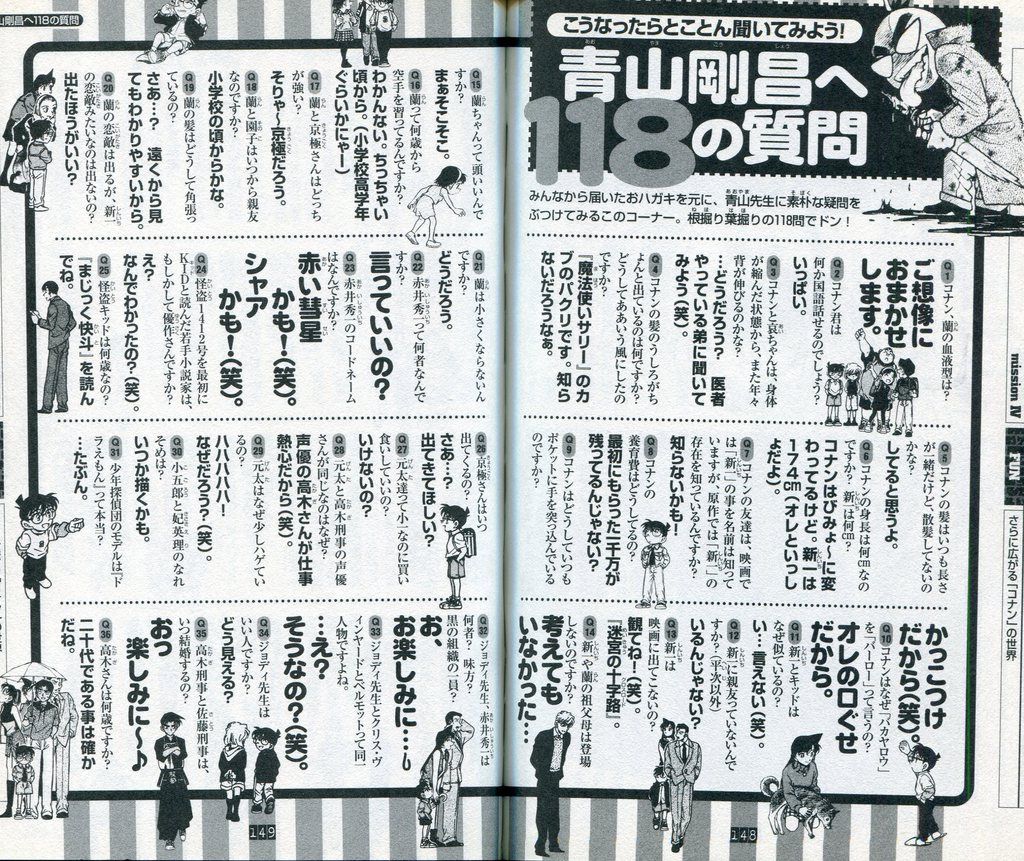 こうなったらとことん聞いてみよう!
青山剛昌へ
118の質問
みんなから届いたおハガキを元に、青山先生に素朴な疑問を
ぶつけてみるこのコーナー。根掘り葉掘りの118問でドン！
Q1 コナン、蘭の血液型は？
ご想像に
おまかせ
します。
Q2 コナン君は
何か国語話せるのでしょう？
いっぱい。
Q3 コナンと哀ちゃんは、身体
が縮んだ状態から、また年々
背が伸びるのかな？
…どうだろう？ 医者
やっている弟に聞いて
みよう（笑）。
Q4 コナンの髪のうしろがち
ょんと出ているのは何ですか？
どうしてああいう風にしたの
ですか？
『魔法使いサリー』のカ
ブのパクリです。知ら
ないだろうなぁ。
Q5 コナンの髪はいつも長さ
が一緒だけど、散髪してないの
かな？
してると思うよ。
Q6 コナンの身長は何cmなの
ですか？ 新一は何cm？
コナンはびみょ〜に変
わってるけど。新一は
174cm（オレといっし
ょだよ）。
Q7 コナンの友達は、映画で
は「新一」の事を名前は知って
いますが、原作では「新一」の
存在を知っているんですか？
知らないかも！
Q8 コナンの
養育費はどうしてるの？
最初にもらった一千万が
残ってるんじゃない？
Q9 コナンはどうしていつも
ポケットに手を突っ込んでいる
のですか？
かっこつけ
だから（笑）。
Q10 コナンはなぜ「バカヤロウ」
を「バーロー」って言うの？
オレの口ぐせ
だから。
Q11 新一とキッドは
なぜ似ているの？
い…言えない（笑）。
Q12 新一に親友っていないんで
すか？（平次以外）
いるんじゃない？
Q13 新一は
映画に出てこないの？
観てね！（笑）。
『迷宮の十字路』。
Q14 新一や蘭の祖父母は登場
しないのですか？
考えても
いなかった…
148
mission IV
FUN
さらに広がる「コナン」の世界
山剛昌へ118の質問
Q15 蘭ちゃんって頭いいんで
すか？
まぁそこそこ。
Q16 蘭って何歳から
空手を習ってるんですか？
わかんない。ちっちゃい
頃から。（小学校高学年
ぐらいかにゃー）
Q17 蘭と京極さんはどっち
が強い？
そりゃ〜京極だろう。
Q18 蘭と園子はいつから親友
なのですか？
小学校の頃からかな。
Q19 蘭の髪はどうして角張っ
ているの？
さあ…？ 遠くから見
てもわかりやすいから。
Q20 蘭の恋敵は出るが、新一
の恋敵みたいなのは出ないの？
出たほうがいい？
Q21 蘭は小さくならないん
ですか？
どうだろう。
Q22 赤井秀一って何者なんで
すか？
言っていいの？
Q23 赤井秀一のコードネーム
はなんですか？
赤い彗星
かも！（笑）。
シャア
かも！（笑）。
Q24 怪盗1412号を最初に
KIDと読んだ若手小説家は、
もしかして優作さんですか？
え？
なんでわかったの？（笑）。
Q25 怪盗キッドは何歳なの？
『まじっく快斗』を読ん
でね。
Q26 京極さんはいつ
出てくるの？
さあ…？
出てきてほしい？
Q27 元太達って小一なのに買い
食いしていいの？
いけないの？
Q28 元太と高木刑事の声優
さんが同じなのはなぜ？
声優の高木さんが仕事
熱心だから（笑）。
Q29 元太はなぜ少しハゲてい
るの？
ハハハハハ！
なぜだろう？（笑）。
Q30 小五郎と妃英理のなれ
そめは？
いつか描くかも。
Q31 少年探偵団のモデルは「ド
ラえもん」って本当？
…たぶん。
Q32 ジョディ先生、赤井秀一は
何者？ 味方？
黒の組織の一員？
お、
お楽しみに……
Q33 ジョディ先生とクリス・ヴ
ィンヤードとベルモットって同一
人物ですよね。
…え？
そうなの？（笑）。
Q34 ジョディ先生は
いい人ですか？
どう見える？
Q35 高木刑事と佐藤刑事は、
いつ結婚するの？
おっ
楽しみに〜♪
Q36 高木さんは何歳ですか？
二十代である事は確か
だね。
149